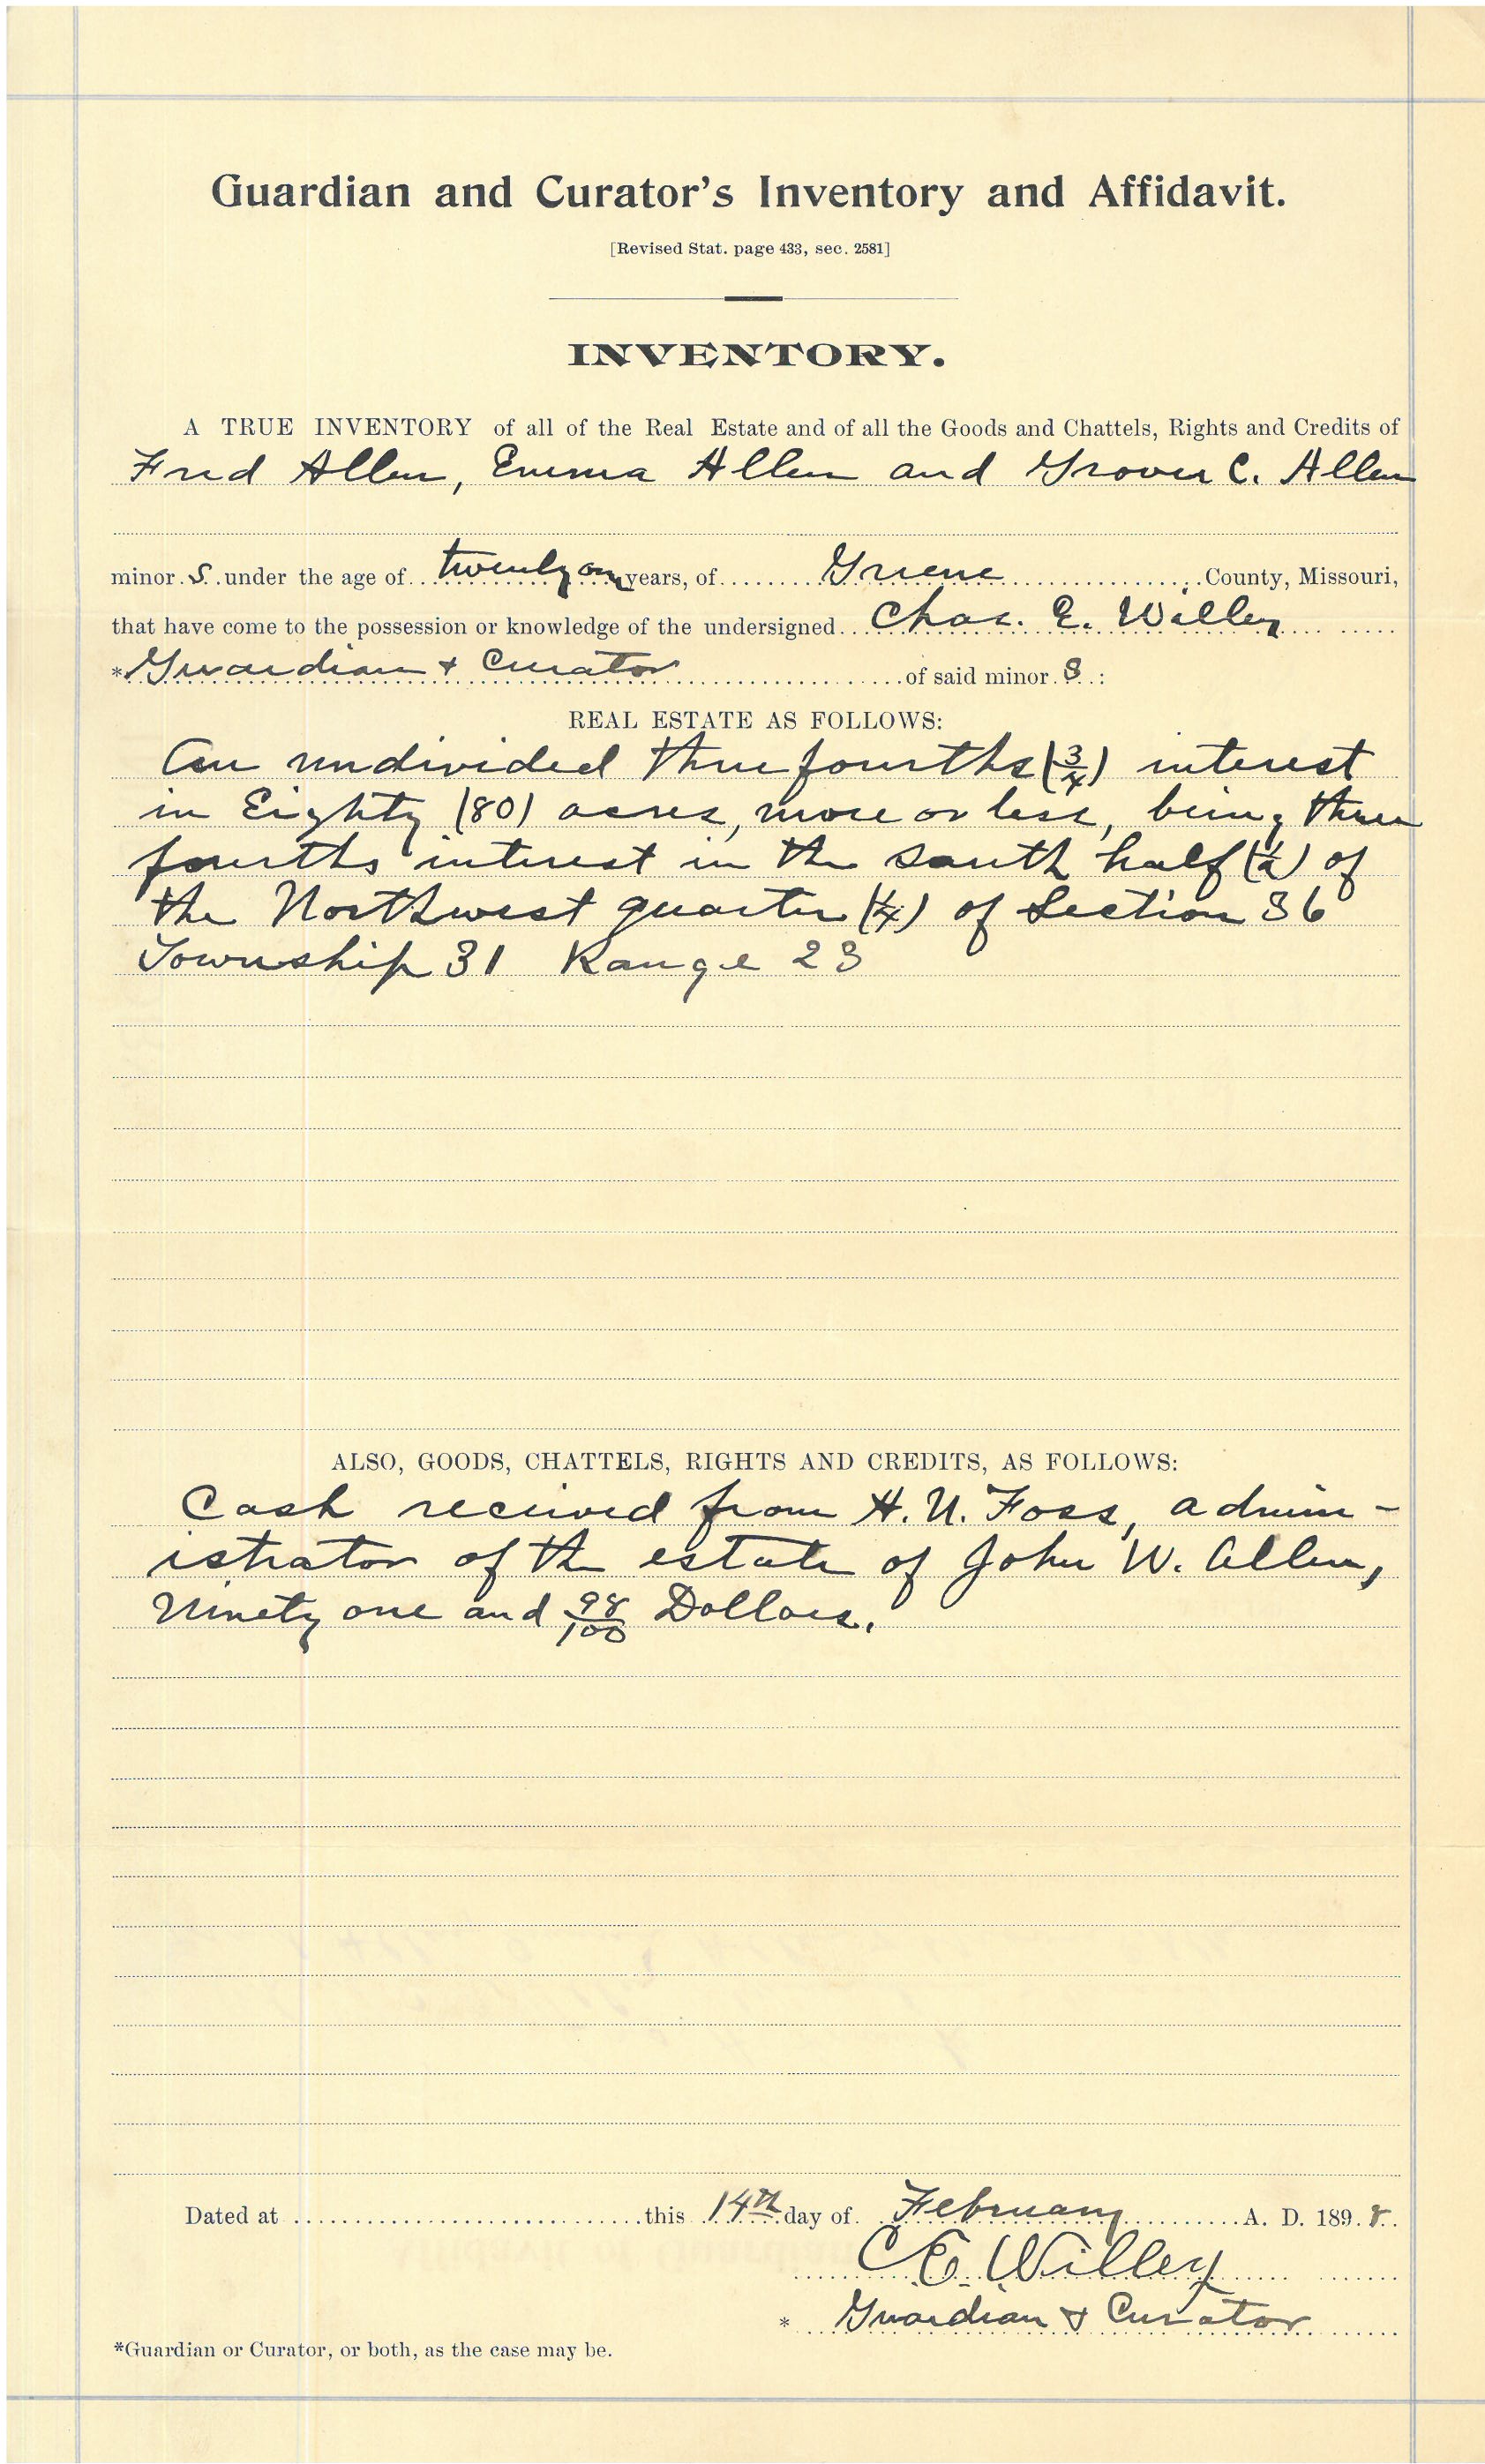 Guardian and Curator's Inventory and Affidavit.
[Revised Stat. page 433, sec. 2581]
INVENTORY.
A TRUE INVENTORY of all of the Real Estate and of all the Goods and Chattels, Rights and Credits of
Fred Allen, Emma Allen and Grover C. Allen
minor s under the age of twenty one years, of Greene County, Missouri,
that have come to the possession or knowledge of the undersigned Chas. E. Willey
*Guardian & Curator of said minor s :
REAL ESTATE AS FOLLOWS:
An undivided three fourths (3/4) interest
in Eighty (80) acres, more or less, being three
fourths interest in the south half (1/2) of
the Northwest quarter (1/4) of Section 36
Township 31 Range 23
ALSO, GOODS, CHATTELS, RIGHTS AND CREDITS, AS FOLLOWS:
Cash received from H. N. Foss, admin-
istrator of the estate of John W. Allen,
Ninety one and 98/100 Dollars.
Dated at this 14th day of February A. D. 1898.
C. E. Willey
* Guardian & Curator
*Guardian or Curator, or both, as the case may be.